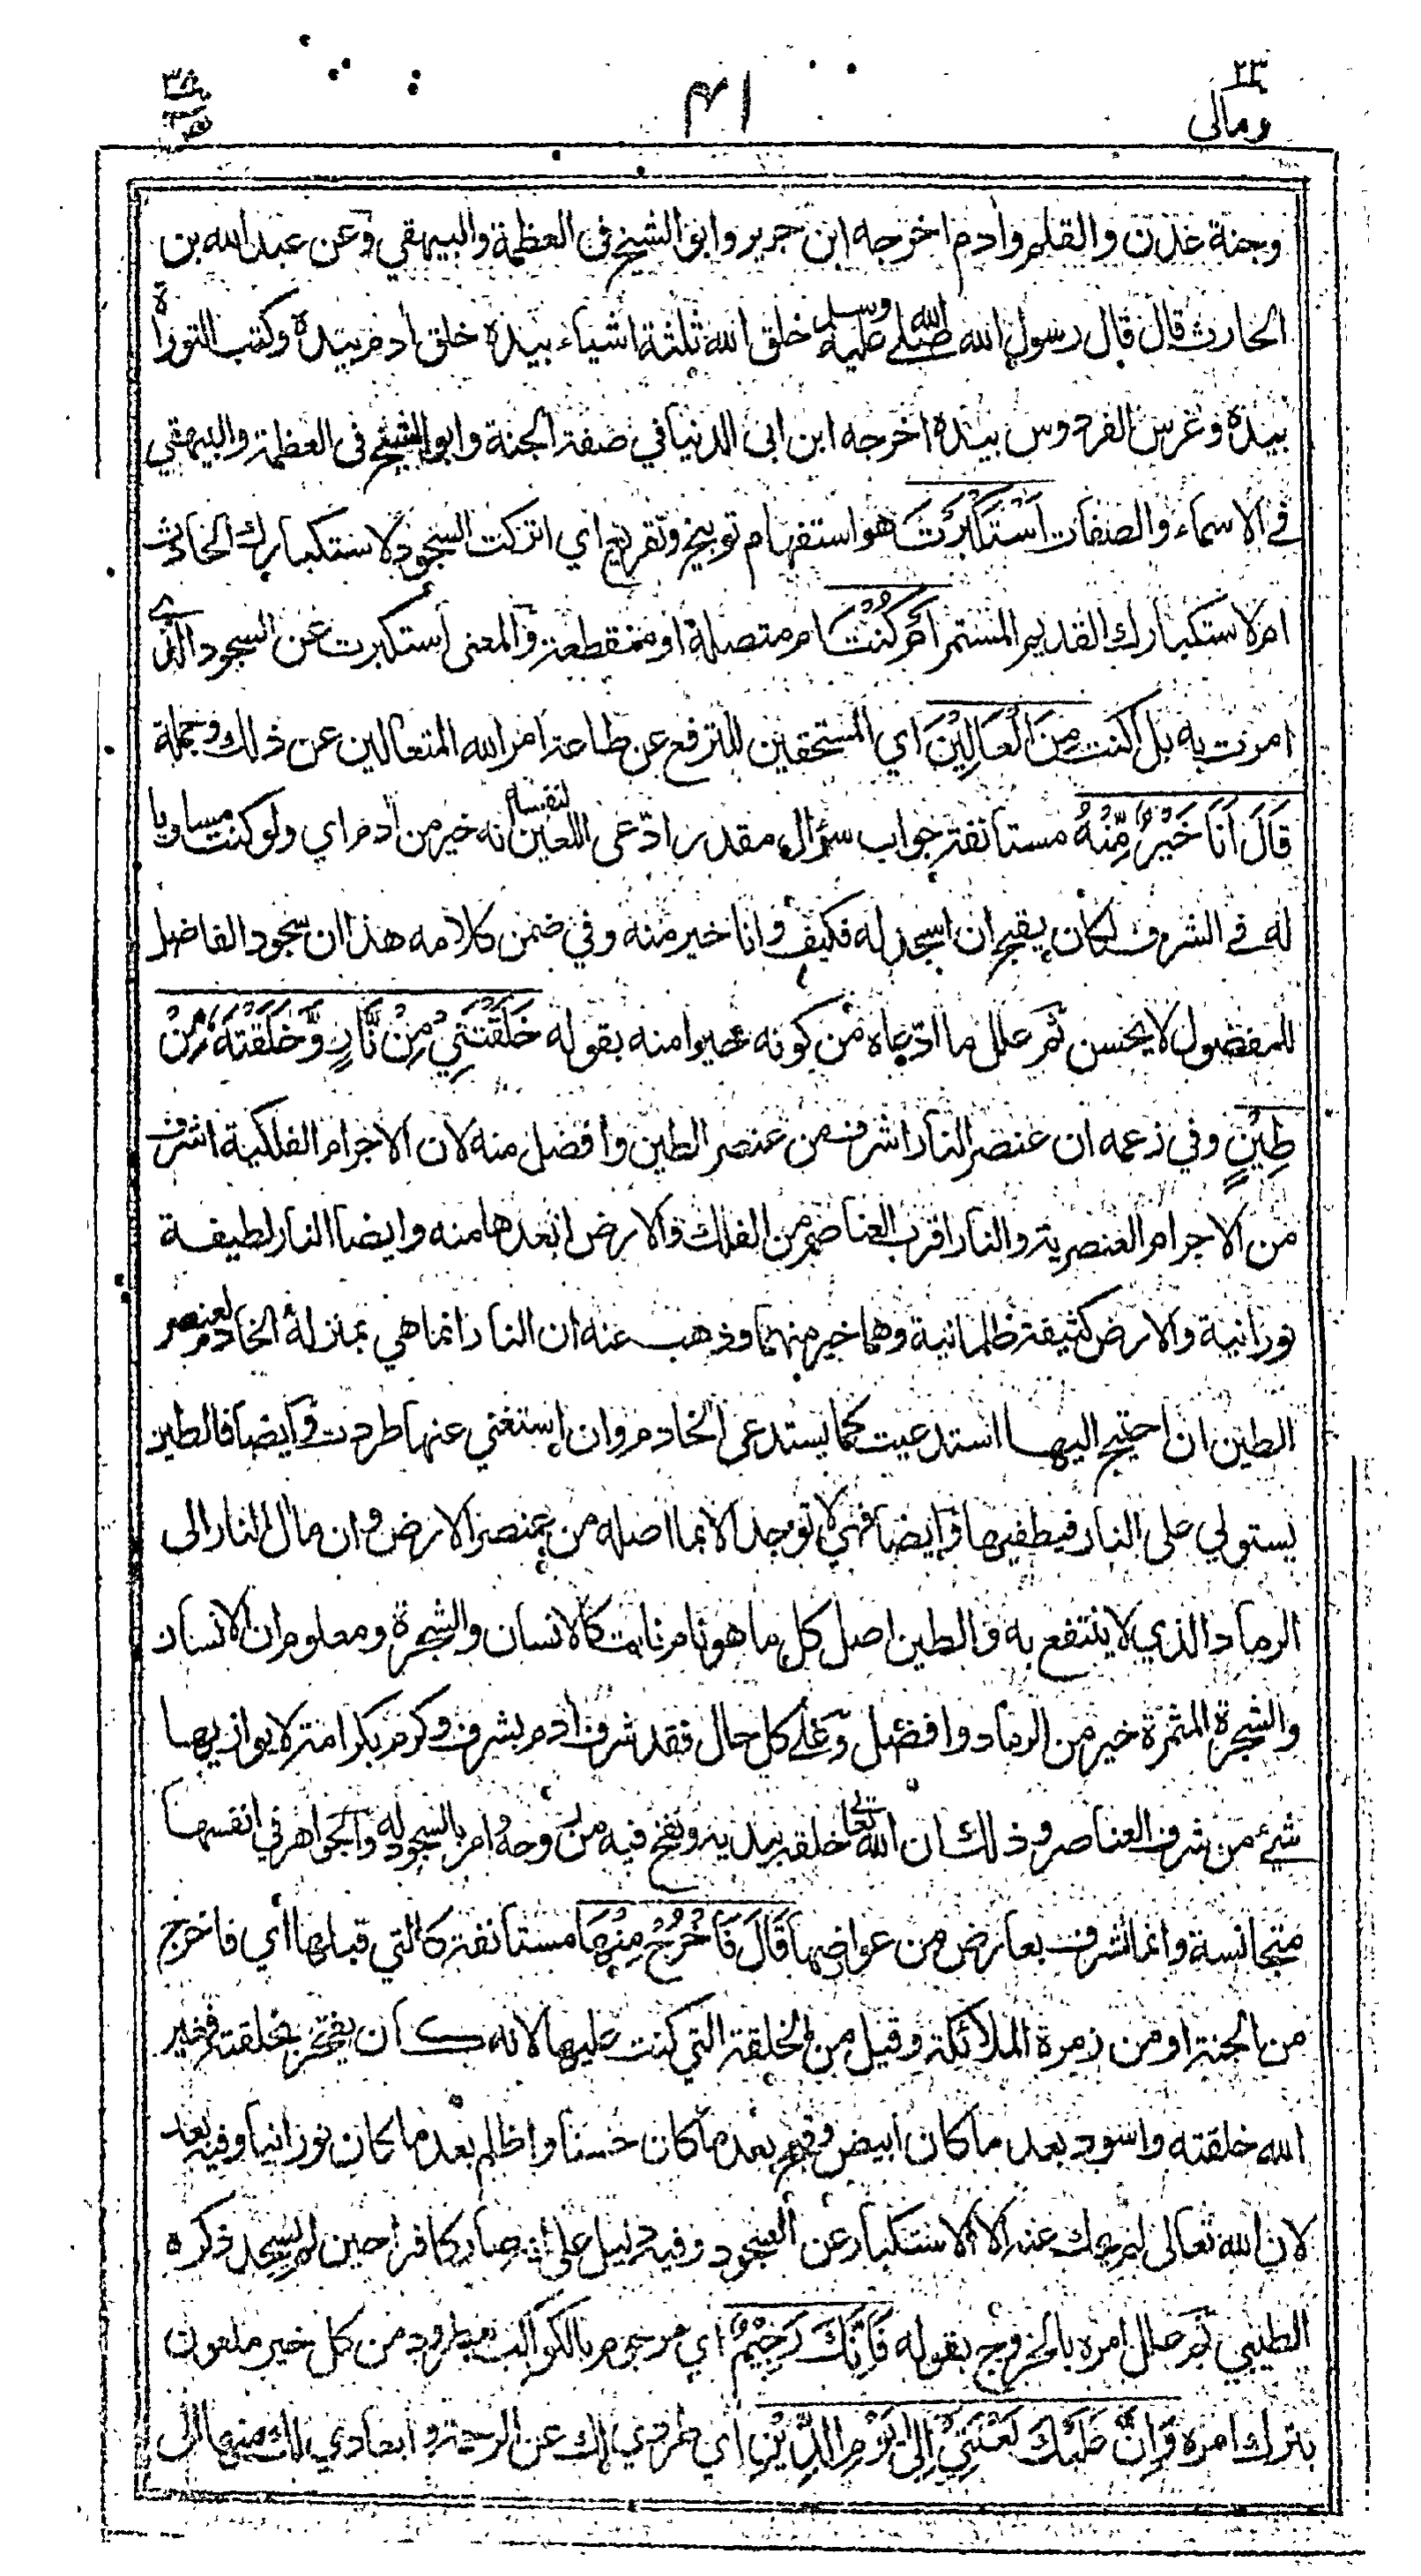 ٢٣
ومالی
٤١
ص
وجنة عدن والقلم وادم اخرجه ابن جرير وابو الشيخ في العظمة والبيهقي وعن عبد الله بن
الحارث قال قال رسول الله صلى الله عليه وسلم خلق الله ثلثة اشياء بيده خلق ادم بيده وكتب التوراة
بيده وغرس الفردوس بيده اخرجه ابن ابي الدنيا في صفة الجنة وابو الشيخ في العظمة والبيهقي
في الاسماء والصفات اَسْتَكْبَرْتَ هو استفهام توبيخ وتقريع اي اتركت السجود لاستكبارك الحادث
ام لاستكبارك القديم المستمر اَمْ كُنْتَ ام متصلة او منقطعة والمعنى استكبرت عن السجود الذي
امرت به بل اكنت مِنَ الْعَالِيْنَ اي المستحقين للترفع عن طاعة امر الله المتعالين عن ذلك وجملة
قَالَ اَنَا خَيْرٌ مِّنْهُ مستانفة جواب سؤال مقدر ادعى اللعين لنفسه انه خير من ادم اي ولو كنت مساويا
له في الشرف لكان يقبح ان اسجد له فكيف وانا خير منه وفي ضمن كلامه هذا ان سجود الفاضل
للمفضول لا يحسن ثم علل ما ادعاه من كونه خيرا منه بقوله خَلَقْتَنِيْ مِنْ نَّارٍ وَّخَلَقْتَهٗ مِنْ
طِيْنٍ وفي زعمه ان عنصر النار اشرف من عنصر الطين وافضل منه لان الاجرام الفلكية اشرف
من الاجرام العنصرية والنار اقرب العناصر من الفلك والارض ابعدها منه وايضا النار لطيفة
نورانية والارض كثيفة ظلمانية وهما خير منهما وذهب عنه ان النار انما هي بمنزلة الخادم لعنصر
الطين ان احتيج اليها استدعيت كما يستدعى الخادم وان استغني عنها طردت وايضا فالطين
يستولي على النار فيطفيها وايضا فهي لا توجد الا بما اصله من عنصر الارض وان مال النار الى
الرماد الذي لا ينتفع به والطين اصل كل ما هو نام نابت كالانسان والشجرة ومعلوم ان الانسان
والشجرة المثمرة خير من الرماد وافضل وعلى كل حال فقد شرف ادم بشرف وكرم بكرامة لا يوازيها
شيء من شرف العناصر وذلك ان الله تعالى خلقه بيديه ونفخ فيه من روحه وامر بالسجود له والجواهر في انفسها
متجانسة وانما تشرف بعارض من عوارضها قَالَ فَاخْرُجْ مِنْهَا مستانفة كالتي قبلها اي فاخرج
من الجنة او من زمرة الملائكة وقيل من الخلقة التي كنت عليها لانه كان يفتخر بخلقته فغير
الله خلقته واسود بعد ما كان ابيض وقبح بعد ما كان حسنا واظلم بعد ما كان نورانيا وفيه بعد
لان الله تعالى لم يحك عنه الا الاستكبار عن السجود وفيه دليل على انه صار كافرا حين لم يسجد ذكره
الطيبي ثم علل امره بالخروج بقوله فَاِنَّكَ رَجِيْمٌ اي مرجوم بالكواكب مطرود من كل خير ملعون
بترك امره وَاِنَّ عَلَيْكَ لَعْنَتِيْٓ اِلٰى يَوْمِ الدِّيْنِ اي طردي لك عن الرحمة وابعادي لك منها الى